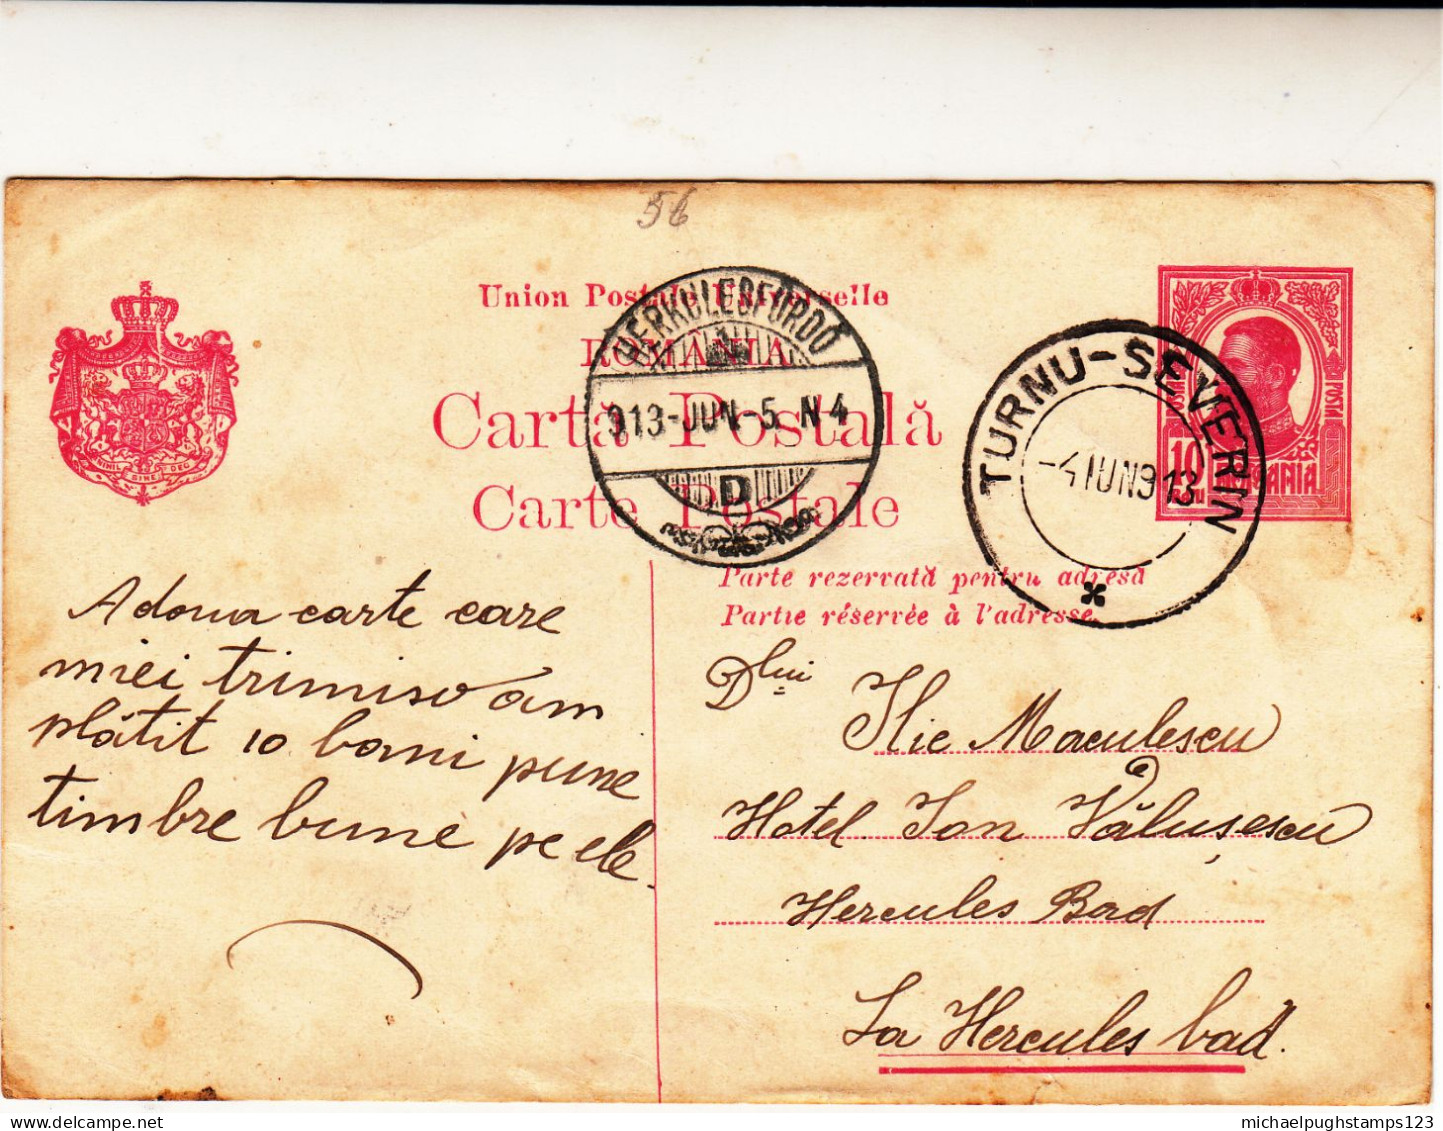 56
Union Postale Universelle
ROMÂNIA
Cartă Postală
Carte Postale
NIHIL SINE DEO
HERKULESFÜRDŐ
913-JUN-5. N4
D
TURNU-SEVERIN
-4 IUN 913
POSTA
10
BANI
ROMANIA
Parte rezervată pentru adresă
Partie réservée à l'adresse.
Adoua carte care
miei trimiso am
plătit 10 bani pune
timbre bune pe ele.
Dlui
Ilie Maculescu
Hotel. Ion Vălușescu
Hercules Bad
La Hercules bad.
michaelpughstamps123